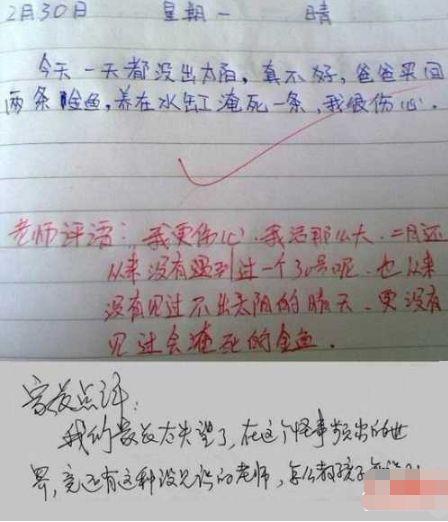 2月30日 星期一 晴
今天一天都没出太阳,真不好,爸爸买回
两条金鱼,养在水缸淹死一条,我很伤心.
老师评语:我更伤心.我活那么大.二月还
从来没有遇到过一个30号呢.也从来
没有见过不出太阳的晴天.更没有
见过会淹死的金鱼.
家长点评:
我的家长太失望了,在这个怪事频出的世
界,竟还有这种没见识的老师,怎么教孩子